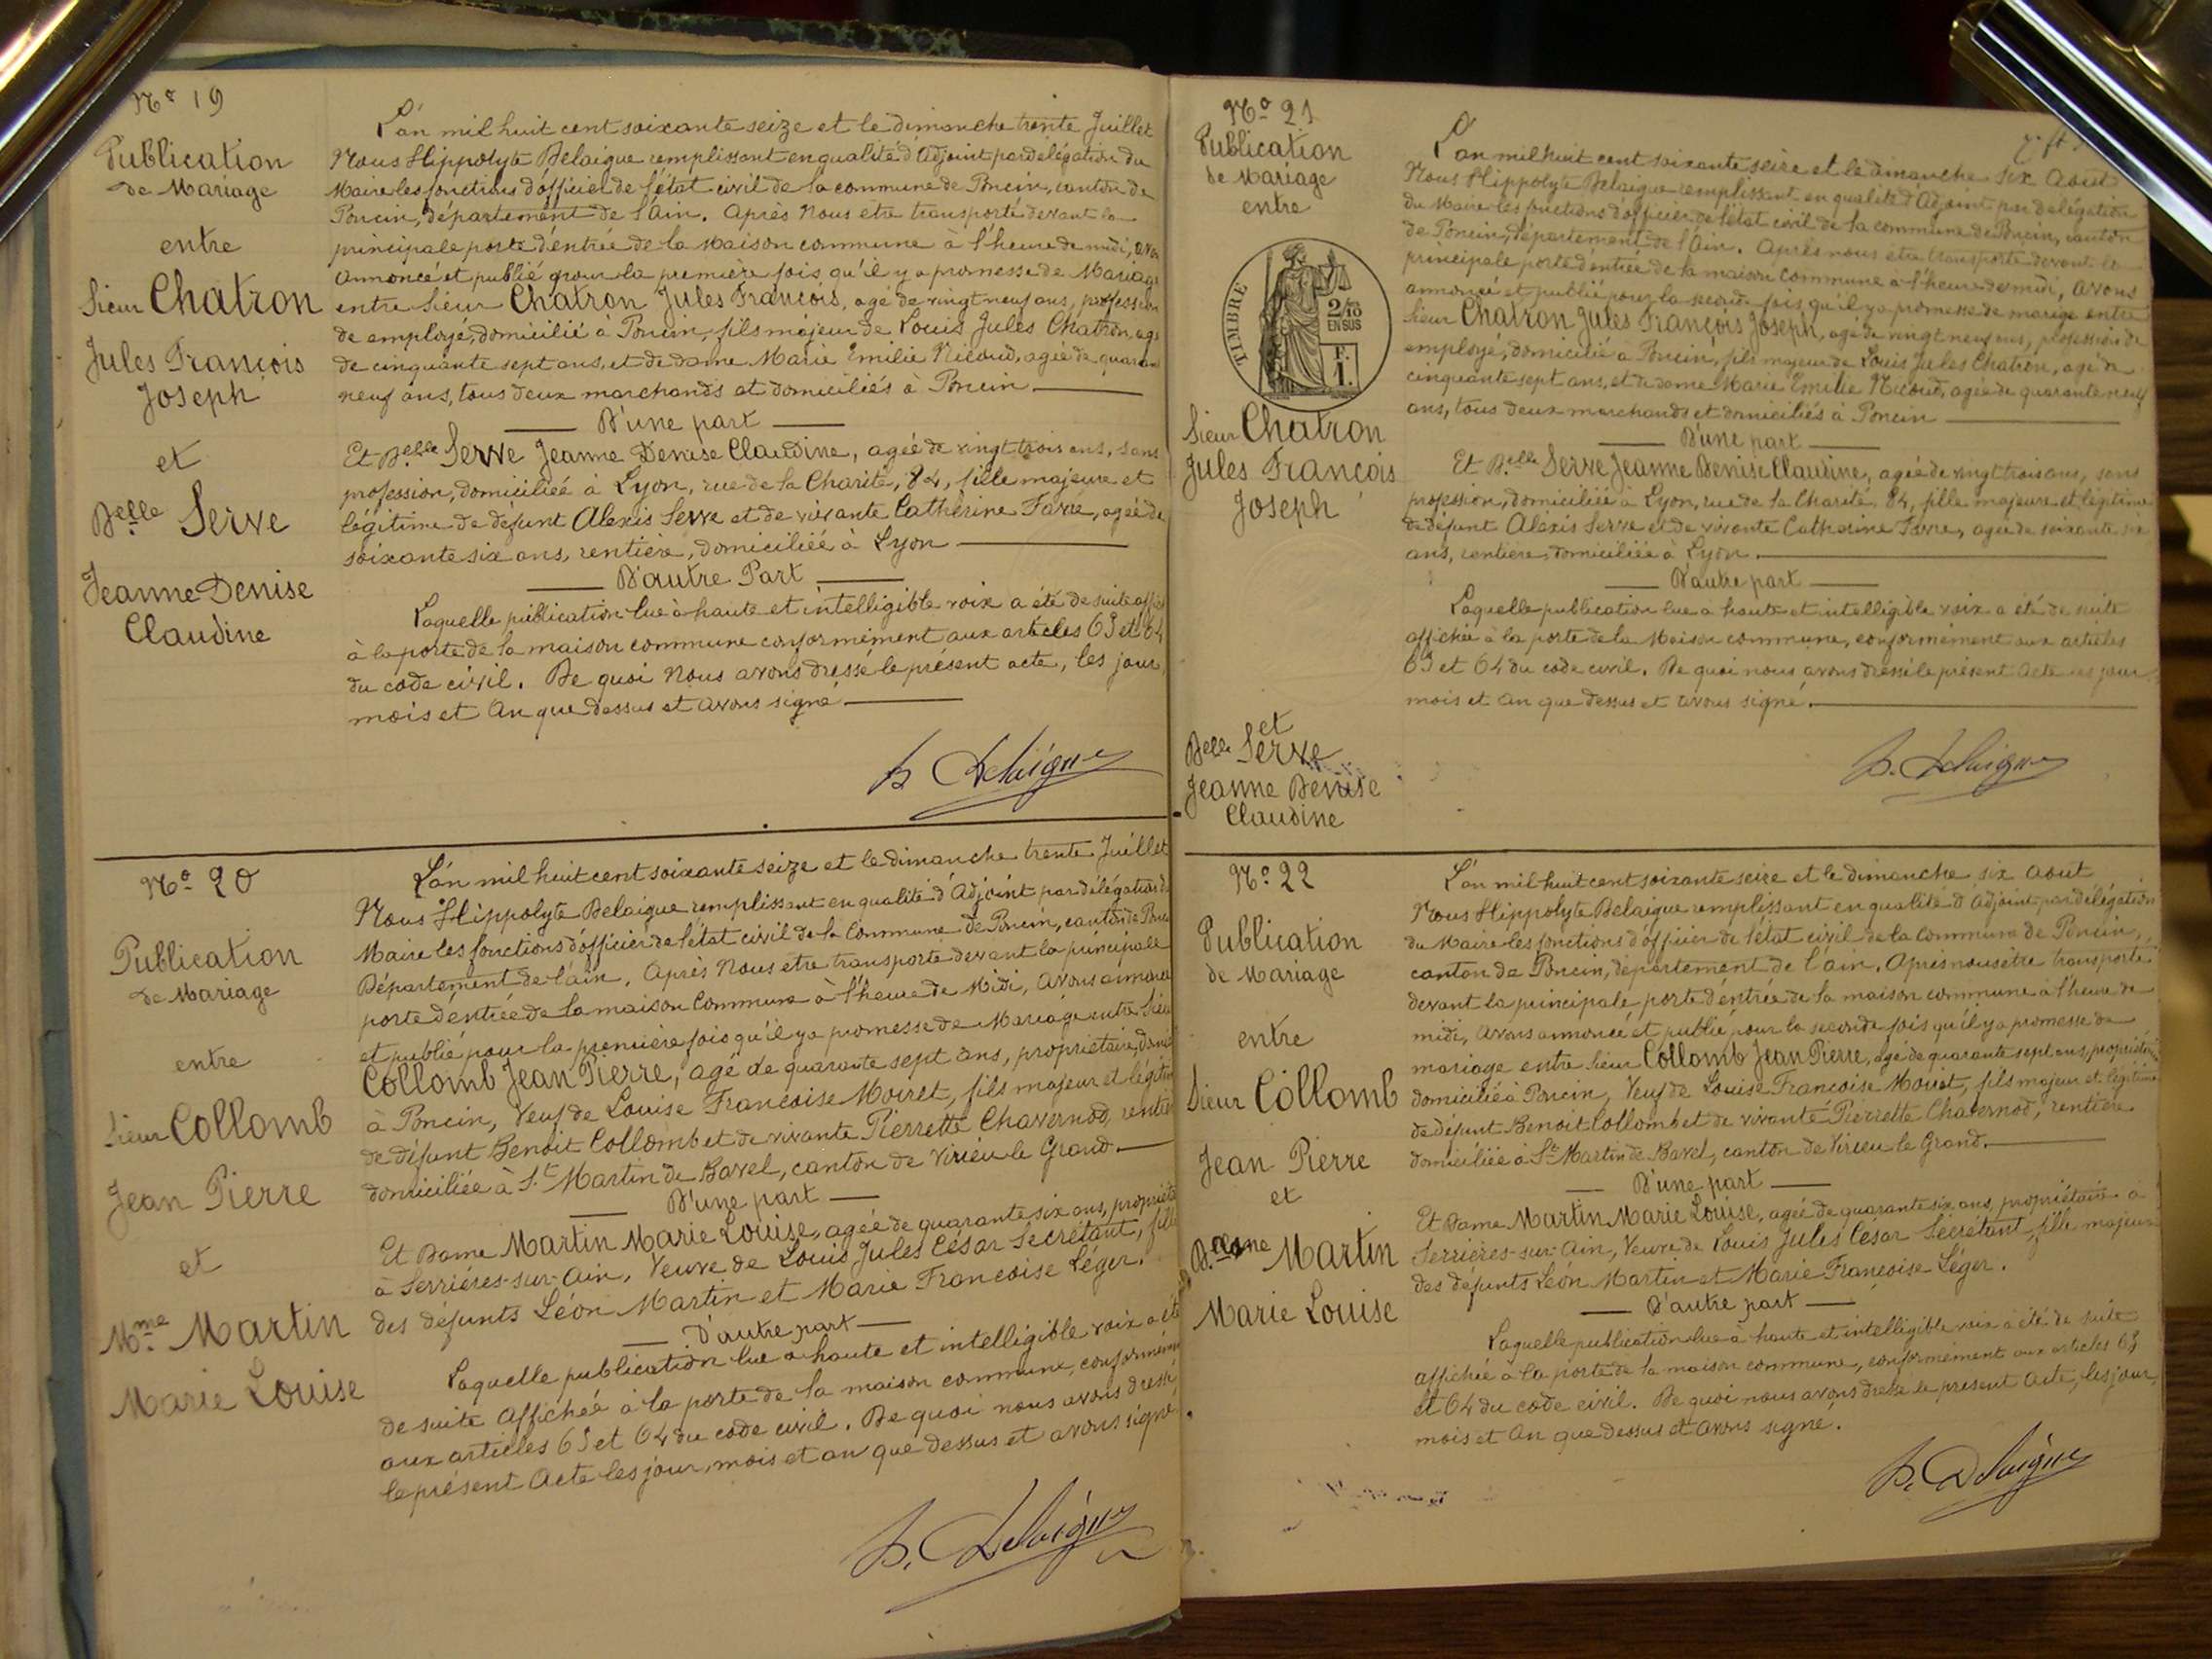 No 19
Publication
de Mariage
entre
Sieur Chatron
Jules François
Joseph
et
Delle Serve
Jeanne Denise
Claudine
L'an mil huit cent soixante seize et le dimanche trente Juillet
Nous Hippolyte Delaigue remplissant en qualité d'Adjoint par délégation du
Maire les fonctions d'officier de l'état civil de la commune de Poncin, canton de
Poncin, département de l'Ain. Après nous être transporté devant la
principale porte d'entrée de la Maison commune à l'heure de midi, avons
annoncé et publié pour la première fois qu'il y a promesse de Mariage
entre Sieur Chatron Jules François, agé de vingt neuf ans, profession
de employé, domicilié à Poncin, fils majeur de Louis Jules Chatron, agé
de cinquante sept ans, et de dame Marie Emilie Nicoud, agée de quarante
neuf ans, tous deux marchands et domiciliés à Poncin
D'une part
Et Delle Serve Jeanne Denise Claudine, agée de vingt trois ans, sans
profession, domiciliée à Lyon, rue de la Charité, 84, fille majeure et
légitime de défunt Alexis Serve et de vivante Cathérine Favre, agée de
soixante six ans, rentière, domiciliée à Lyon
D'autre Part
Laquelle publication lue à haute et intelligible voix a été de suite affichée
à la porte de la maison commune conformément aux articles 63 et 64
du code civil. De quoi nous avons dressé le présent acte, les jour,
mois et an que dessus et avons signé
h Delaigue
No 20
Publication
de Mariage
entre
Sieur Collomb
Jean Pierre
et
Mme Martin
Marie Louise
L'an mil huit cent soixante seize et le dimanche trente Juillet
Nous Hippolyte Delaigue remplissant en qualité d'Adjoint par délégation du
Maire les fonctions d'officier de l'état civil de la Commune de Poncin, canton de Poncin
Département de l'ain. Après nous etre transporté devant la principale
porte d'entrée de la maison Commune à l'heure de Midi, avons annoncé
et publié pour la première fois qu'il y a promesse de Mariage entre Sieur
Collomb Jean Pierre, agé de quarante sept ans, propriétaire, domicilié
à Poncin, Veuf de Louise Françoise Moiret, fils majeur et légitime
de défunt Benoit Collomb et de vivante Pierrette Chavernod, rentière
domiciliée à St Martin de Bavel, canton de Virieu le Grand.
D'une part
Et Dame Martin Marie Louise, agée de quarante six ans, propriétaire
à Serriéres-sur-Ain, Veuve de Louis Jules César Secrétant, fille
des défunts Léon Martin et Marie Françoise Léger.
D'autre part
Laquelle publication lue à haute et intelligible voix a été
de suite affichée à la porte de la maison commune, conformément
aux articles 63 et 64 du code civil. De quoi nous avons dressé
le présent Acte les jour, mois et an que dessus et avons signé
h. Delaigue
No 21
Publication
de Mariage
entre
TIMBRE
2/10
EN SUS
F.
1.
Sieur Chatron
Jules François
Joseph
et
Delle Serve
Jeanne Denise
Claudine
L'an mil huit cent soixante seize et le dimanche six Août
Nous Hippolyte Delaigue remplissant en qualité d'Adjoint par délégation
du Maire les fonctions d'officier de l'état civil de la commune de Poncin, canton
de Poncin, département de l'Ain. Après nous être transporté devant la
principale porte d'entrée de la maison commune à l'heure de midi, avons
annoncé et publié pour la seconde fois qu'il y a promesse de mariage entre
Sieur Chatron Jules François Joseph, agé de vingt neuf ans, profession de
employé, domicilié à Poncin, fils majeur de Louis Jules Chatron, agé de
cinquante sept ans, et de dame Marie Emilie Nicoud, agée de quarante neuf
ans, tous deux marchands et domiciliés à Poncin
D'une part
Et Delle Serve Jeanne Denise Claudine, agée de vingt trois ans, sans
profession, domiciliée à Lyon, rue de la Charité, 84, fille majeure et légitime
de défunt Aléxis Serve et de vivante Catherine Favre, agée de soixante six
ans, rentière, domiciliée à Lyon.
D'autre part
Laquelle publication lue à haute et intelligible voix a été de suite
affichée à la porte de la Maison commune, conformément aux articles
63 et 64 du code civil. De quoi nous avons dressé le présent Acte les jour,
mois et an que dessus et avons signé.
h. Delaigue
No 22
Publication
de Mariage
entre
Sieur Collomb
Jean Pierre
et
Dame Martin
Marie Louise
L'an mil huit cent soixante seize et le dimanche six Aout
Nous Hippolyte Delaigue remplissant en qualité d'Adjoint par délégation
du Maire les fonctions d'officier de l'état civil de la Commune de Poncin,
canton de Poncin, département de l'ain. Après nous être transporté
devant la principale porte d'entrée de la maison commune à l'heure de
midi, avons annoncé et publié pour la seconde fois qu'il y a promesse de
mariage entre Sieur Collomb Jean Pierre, agé de quarante sept ans, propriétaire
domicilié à Poncin, Veuf de Louise Françoise Moiret, fils majeur et légitime
de défunt Benoit Collomb et de vivante Pierrette Chavernod, rentière
domiciliée à St Martin de Bavel, canton de Virieu le Grand.
D'une part
Et Dame Martin Marie Louise, agée de quarante six ans, propriétaire à
Serriéres-sur-Ain, Veuve de Louis Jules César Secrétant, fille majeure
des défunts Léon Martin et Marie Françoise Léger.
D'autre part
Laquelle publication lue à haute et intelligible voix a été de suite
affichée à la porte de la maison commune, conformément aux articles 63
et 64 du code civil. De quoi nous avons dressé le présent Acte, les jour,
mois et an que dessus et avons signé.
h. Delaigue